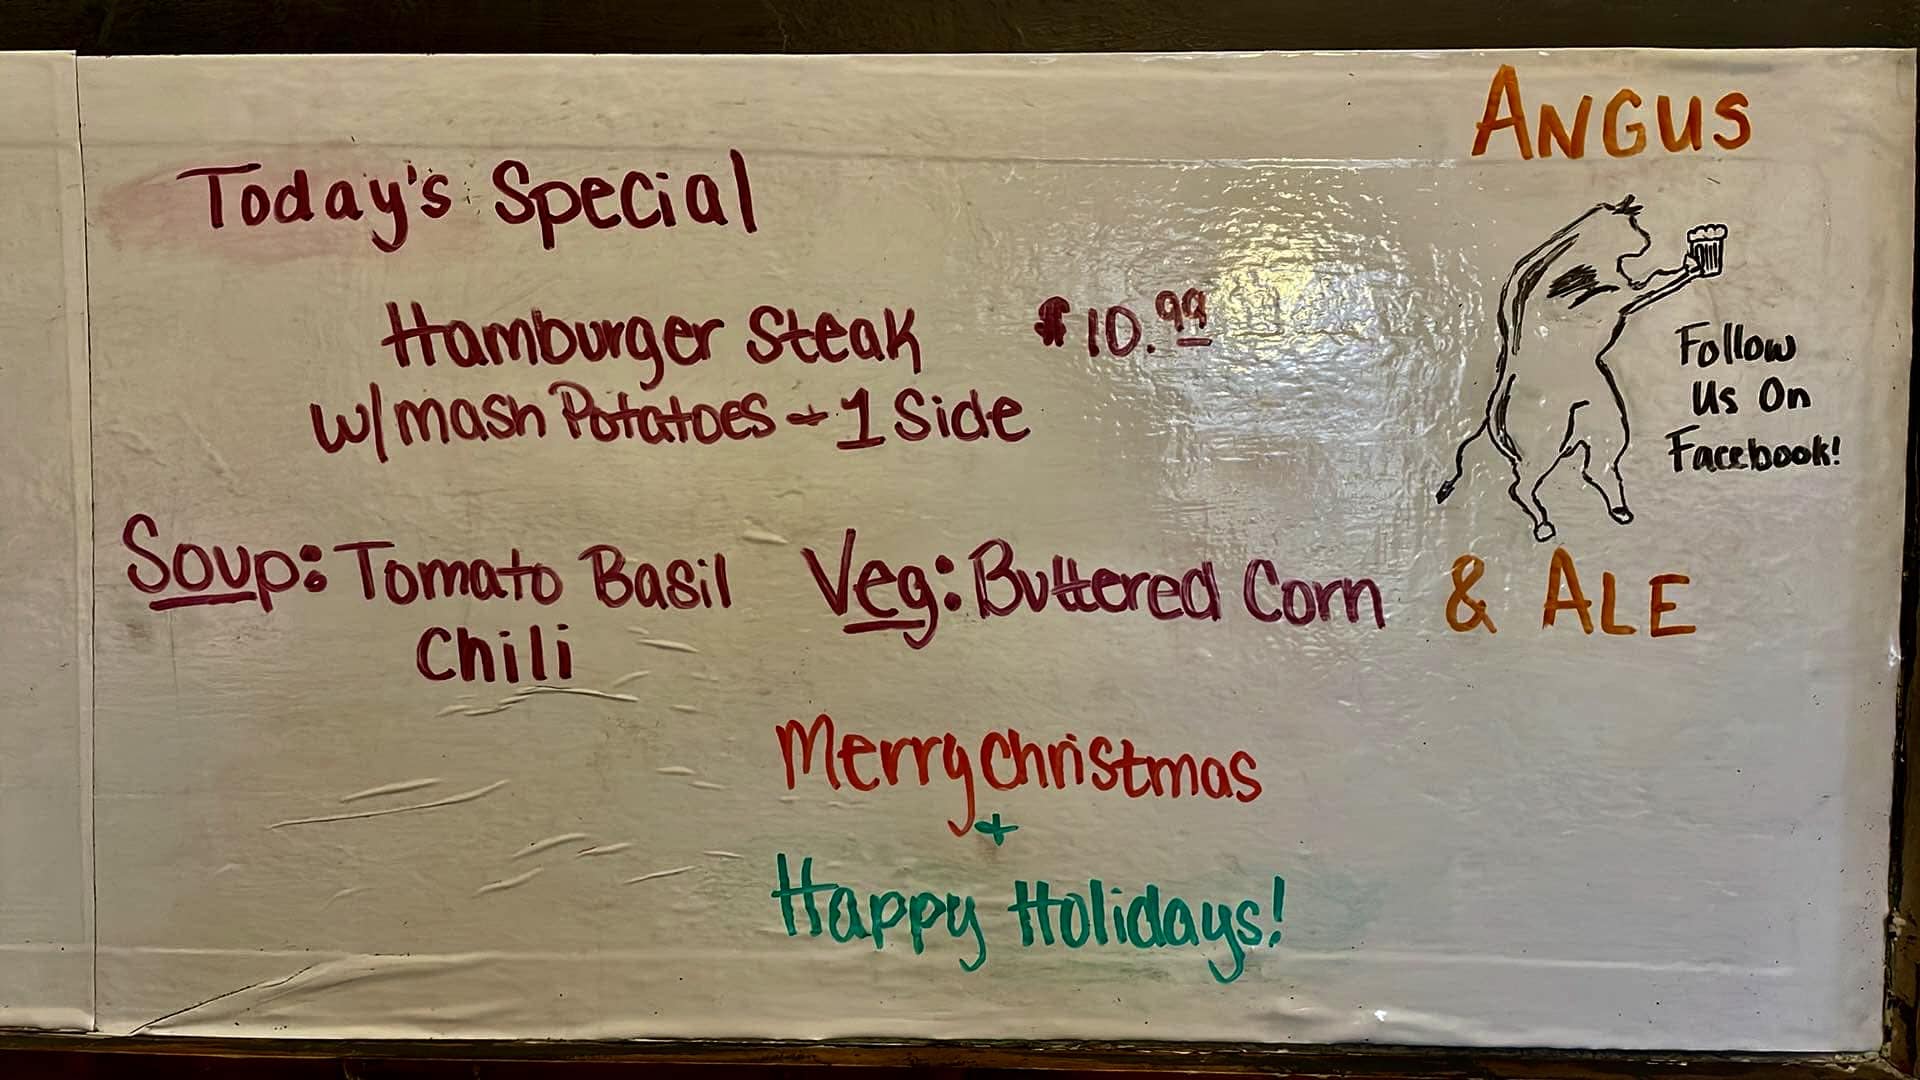 ANGUS
Today's Special
Hamburger Steak $10.99
w/ mash Potatoes + 1 Side
Follow
Us On
Facebook!
Soup: Tomato Basil
Chili
Veg: Buttered Corn
& ALE
Merry Christmas
+
Happy Holidays!